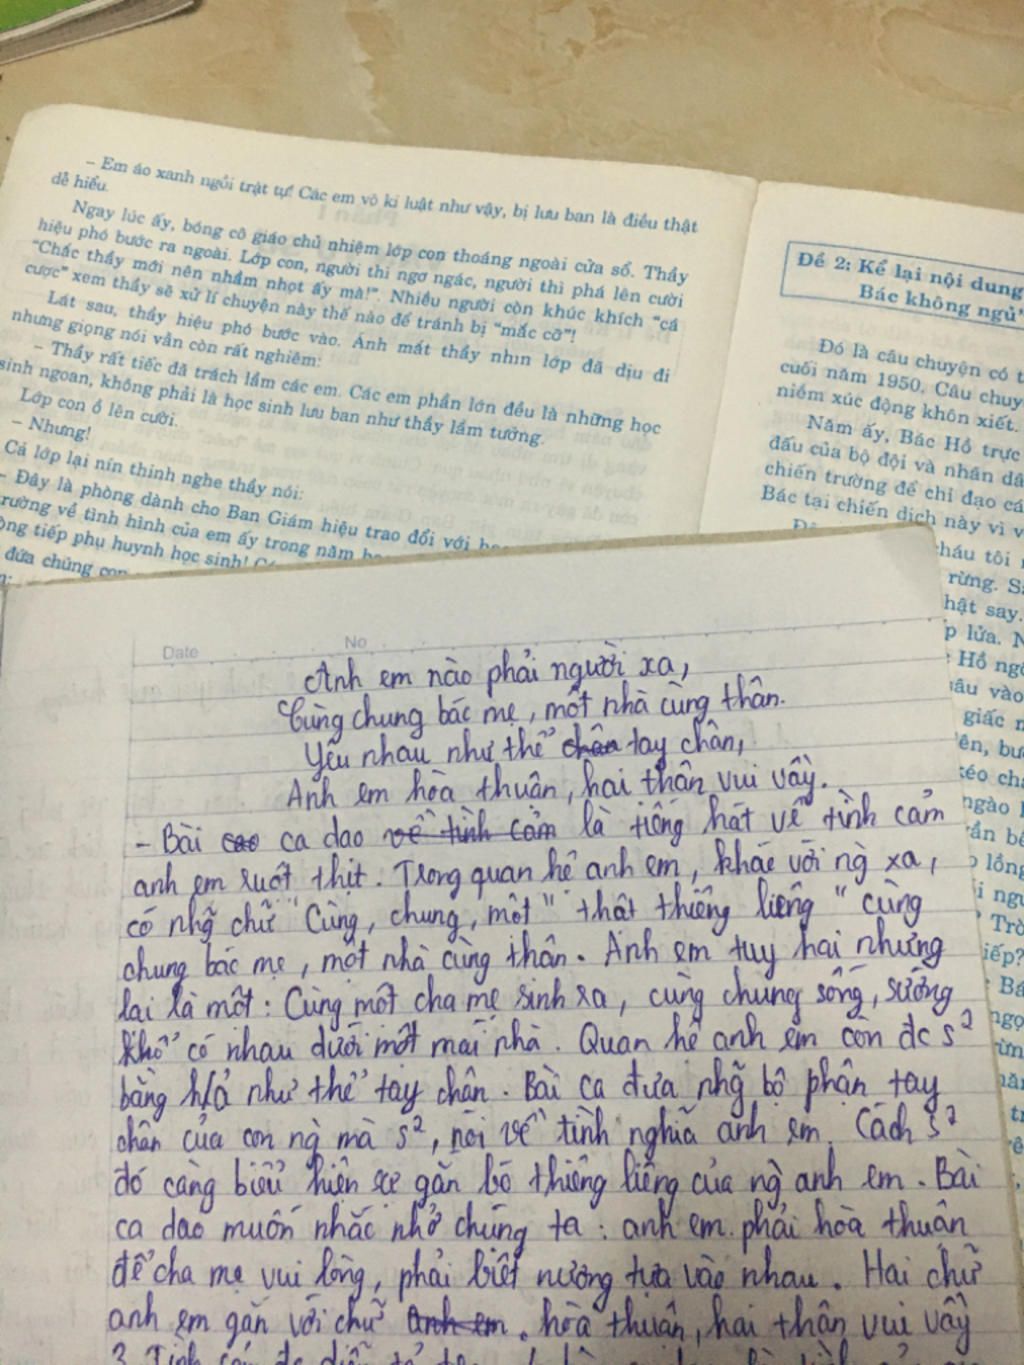 – Em áo xanh ngồi trật tự! Các em vô kỉ luật như vậy, bị lưu ban là điều thật
dễ hiểu.
Ngay lúc ấy, bóng cô giáo chủ nhiệm lớp con thoáng ngoài cửa sổ. Thầy
hiệu phó bước ra ngoài. Lớp con, người thì ngơ ngác, người thì phá lên cười
"Chắc thầy mới nên nhầm nhọt ấy mà!". Nhiều người còn khúc khích "cá
cược" xem thầy sẽ xử lí chuyện này thế nào để tránh bị "mắc cỡ"!
Lát sau, thầy hiệu phó bước vào. Ánh mắt thầy nhìn lớp đã dịu đi
nhưng giọng nói vẫn còn rất nghiêm:
– Thầy rất tiếc đã trách lầm các em. Các em phần lớn đều là những học
sinh ngoan, không phải là học sinh lưu ban như thầy lầm tưởng.
Lớp con ồ lên cười.
– Nhưng!
Cả lớp lại nín thinh nghe thầy nói:
– Đây là phòng dành cho Ban Giám hiệu trao đổi với
về tình hình của em ấy trong năm
tiếp phụ huynh học sinh!
đứa chúng
Đề 2: Kể lại nội dung
Bác không ngủ"
Đó là câu chuyện có
cuối năm 1950. Câu chuy
niềm xúc động khôn xiết.
Năm ấy, Bác Hồ trực
đấu của bộ đội và nhân dâ
chiến trường để chỉ đạo cá
Bác tại chiến dịch này vì v
cháu tôi
rừng. S
thật say.
lửa. N
Hồ ng
vào
giấc
bư
kéo ch
ngào
bê
lồng
ngư
Trò
iếp?
Bá
Date No
Anh em nào phải người xa,
Cùng chung bác mẹ, một nhà cùng thân.
Yêu nhau như thể chân tay chân,
Anh em hòa thuận, hai thân vui vầy.
- Bài cao ca dao về tình cảm là tiếng hát về tình cảm
anh em ruột thịt. Trong quan hệ anh em, khác với ng xa,
có nhg chữ "Cùng, chung, một" thật thiêng liêng "cùng
chung bác mẹ, một nhà cùng thân. Anh em tuy hai nhưng
lại là một: Cùng một cha mẹ sinh ra, cùng chung sống, sướng
khổ có nhau dưới một mái nhà. Quan hệ anh em còn đc s²
bằng h/ả như thể tay chân. Bài ca đưa nhg bộ phận tay
chân của con ng mà s², nói về tình nghĩa anh em. Cách s²
đó càng biểu hiện sự gắn bó thiêng liêng của ng anh em. Bài
ca dao muốn nhắc nhở chúng ta: anh em phải hòa thuận
để cha mẹ vui lòng, phải biết nương tựa vào nhau. Hai chữ
anh em gắn với chữ anh em. hòa thuận, hai thân vui vầy